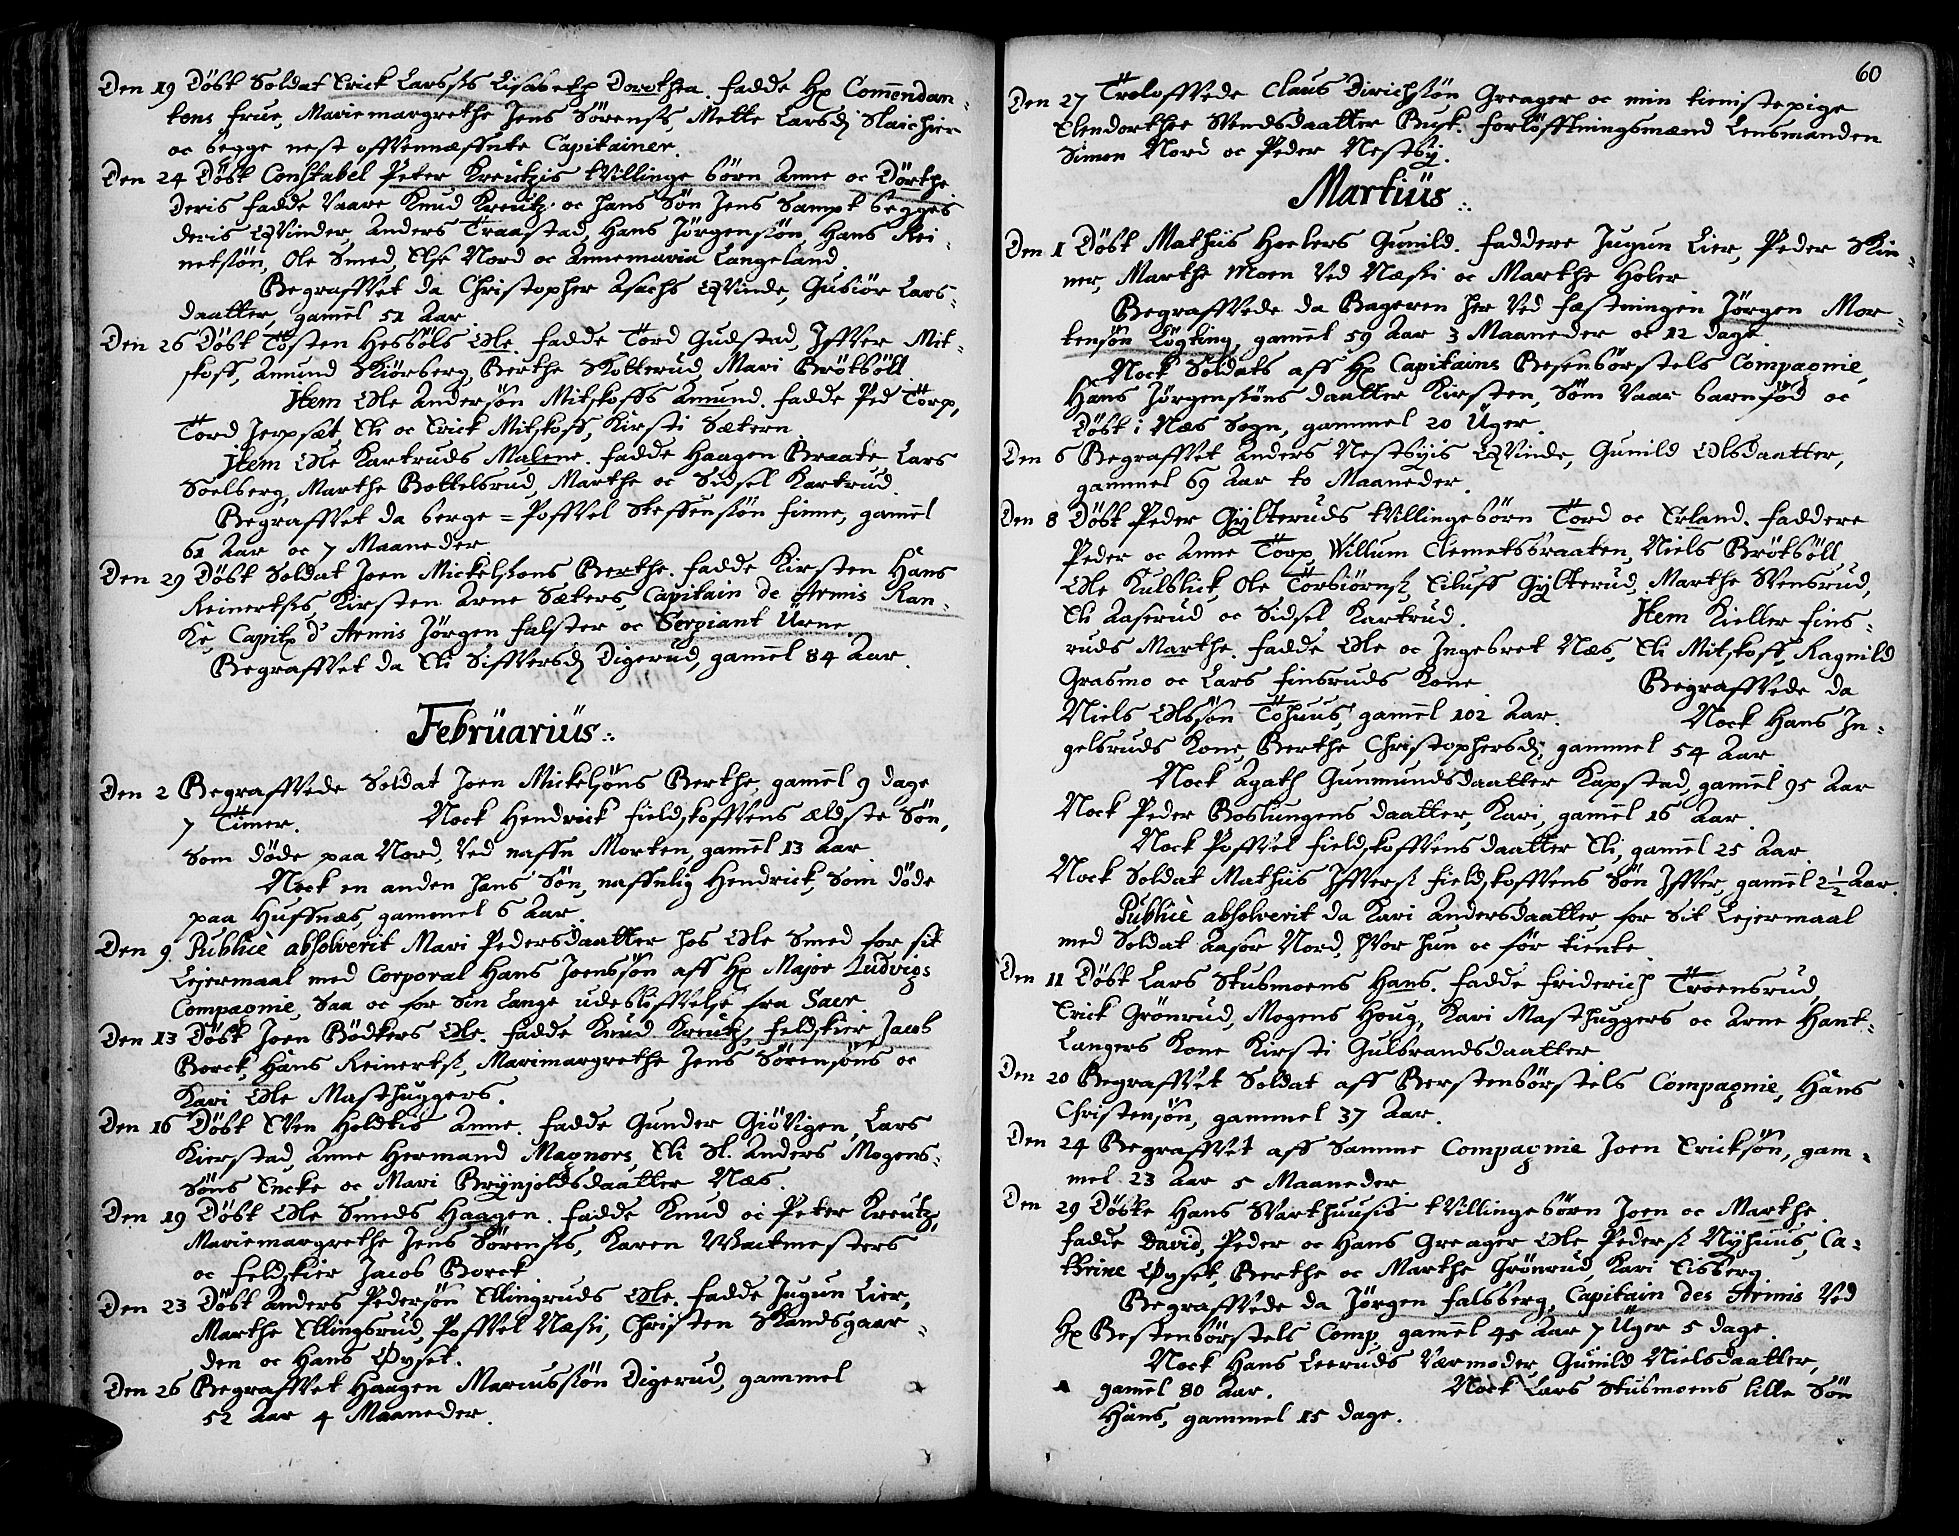 Den 19 Döbt Soldat Erick Larsöns Lisabeth Dorothea. fadde Hr Comendan-
tens frue, Mariemargrethe Jens Sörensens, Mette Larsd
oc begge nest offvennæffnte Capitainer.
Den 24 Döbt Constabel Peter Kreutzis tvillinge börn Anne oc Dörthe
Deris fadde Vaare Knud Kreutz oc hans Sön Jens Sampt begges
deris QVinder, Anders Traastad, Hans Jörgensön, Hans Rei-
nertsön, Ole Smed, Else Nord oc Annemaria Langeland.
Begraffvet da Christopher Asachs QVinde, Gubiör Lars-
daatter, gamel 51 Aar
Den 26 Döbt Tosten Hesböls Ole. fadde Tord Gudstad, Iffver Mit-
skoff, Amund Skiörberg, Berthe Kotterud, Mari Brötböll
Item Ole Andersön Mitskoffs Amund. fadde Ped Torp,
Tord Jerpset, Eli oc Erick Mitskoff, Kirsti Sætern.
Item Ole Kartruds Malene. fadde Haagen Braate Lars
Soelberg, Marthe Bottelsrud, Marthe oc Sidsel Kartrud.
Begraffvet da berge = Poffvel Steffensön finne, gamel
61 Aar oc 7 Maaneder
Den 29 Döbt Soldat Joen Mickelsons Berthe. fadde Kirsten Hans
Reinertsens, Kirsten Arne Sæters, Capitain de Armis Ran-
ke, Capitn d' Armis Jörgen falster oc Sergiant Urne.
Begraffvet da Eli Siffversd Digerud, gamel 84 Aar.
Februarius
Den 2 Begraffvede Soldat Joen Mickelsöns Berthe, gamel 9 dage
7 Timer. Nock Hendrick fieldskoffvens ældste Sön,
Som döde paa Nord, Ved naffn Morten, gamel 13 Aar
Nock en anden hans Sön, naffnlig Hendrick, Som döde
paa Huffnæs, gammel 6 Aar.
Den 9. Publicè absolverit Mari Pedersdaatter hos Ole Smed for sit
Lejermaal med Corporal Hans Joenssön aff Hr Major Ludvigs
Compagnie, Saa oc for Sin Lange udebliffvelse fra Sacr.
Den 13 Döbt Joen Bödkers Ole. fadde Knud Kreutz, feldskier Jacob
Borck, Hans Reinerts, Marimargrethe Jens Sörensöns oc
Kari Ole Masthuggers.
Den 16 Döbt Even Holdtis Anne. fadde Gunder Giövigen, Lars
Kierstad, Anne Hermand Magnors, Eli Sl. Anders Mogens-
Söns Encke oc Mari Brynjoldsdaatter Næs.
Den 19 Döbt Ole Smeds Haagen. fadde Knud oc Peter Kreutz,
Mariemargrethe Jens Sörensens, Karen Wacktmesters
oc feldskier Jacob Borck
Den 23 Döbt Anders Pedersön Ellingruds Ole. fadde Jugun Lier,
Marthe Ellingsrud, Poffvel Næste, Christen Skandsgaar-
den oc Hans Öyset.
Den 26 Begraffvet Haagen Marcussön Digerud, gammel
52 Aar 4 Maaneder.
60
Den 27 Troloffvede Claus Dirichsön Greager oc min tienistepige
Elendorthee Svendsdaatter Busk. forlöfftningsmænd Lensmanden
Simon Nord oc Peder Nestby.
Martius
Den 1 Döbt Mathiis Hoelers Gunild. faddere Jugun Lier, Peder Skin-
ner, Marthe Moen Ved Næste oc Marthe Holer
Begraffvede da Bageren her Ved fæstningen Jörgen Mor-
tensön Lögting, gamel 59 Aar 3 Maaneder oc 12 dage.
Nock Soldats aff Hr Capitains Besenbörstels Compagnie,
Hans Jörgensöns daatter Kirsten, Som Vaar barnföd oc
Döbt i Næs Sogn, gammel 20 Uger.
Den 6 Begraffvet Anders Nestbyis QVinde, Gunild Olsdaatter,
gammel 69 Aar to Maaneder.
Den 8 Döbt Peder Gylteruds tvillingebörn Tord oc Erland. faddere
Peder oc Anne Torp, Willum Clemetsbraaten, Niels Brötböll
Ole Kulblick, Ole Torbiörns, Eiluff Gylterud, Marthe Svensrud,
Eli Aaserud oc Sidsel Kartrud. Item Kieller fins-
ruds Marthe. fadde Ole oc Ingebret Næs, Eli Mitskoff, Ragnild
Grasmo oc Lars finsruds Kone Begraffvede da
Niels Olssön Tohuus, gamel 102 Aar. Nock Hans In-
gelsruds Kone, Berthe Christophersd, gammel 54 Aar
Nock Agath Gunmundsdaatter Kapstad, gamel 95 Aar
Nock Peder Boslungens daatter, Kari, gamel 16 Aar.
Nock Poffvel fieldskoffvens daatter Eli, gamel 25 Aar
Nock Soldat Mathiis Iffvers fieldskoffvens Sön Iffver, gamel 2 1/2 Aar.
Publicè absolverit da Kari Andersdaatter for Sit Lejermaal
med Soldat Aasor Nord, hVor hun oc för tiente.
Den 11 Döbt Lars Stubmoens Hans. fadde Friderich Troensrud,
Erick Grönrud, Mogens Houg, Kari Masthuggers oc Arne Hant-
Langers Kone Kirsti Gulbrandsdaatter
Den 20 Begraffvet Soldat aff Berstenbörstels Compagnie, Hans
Christensön, gammel 37 Aar.
Den 24 Begraffvet aff Samme Compagnie Joen Ericksön, gam-
mel 23 Aar 5 Maaneder
Den 29 Döbte Hans Svarthuusis tvillingebörn Joen oc Marthe.
fadde David, Peder oc Hans Greager Ole Peders Nyhuus, Ca-
thrine Öyset, Berthe oc Marthe Grönrud, Kari Eisberg
Begraffvede da Jörgen Falsberg, Capitain des Armis Ved
Hr Bestenbörstels Comp. gamel 45 Aar 7 Uger 5 dage.
Nock Hans Leeruds Værmoder, Gunild Nielsdaatter,
gamel 80 Aar. Nock Lars Stubmoens lille Sön
Hans, gammel 15 dage.